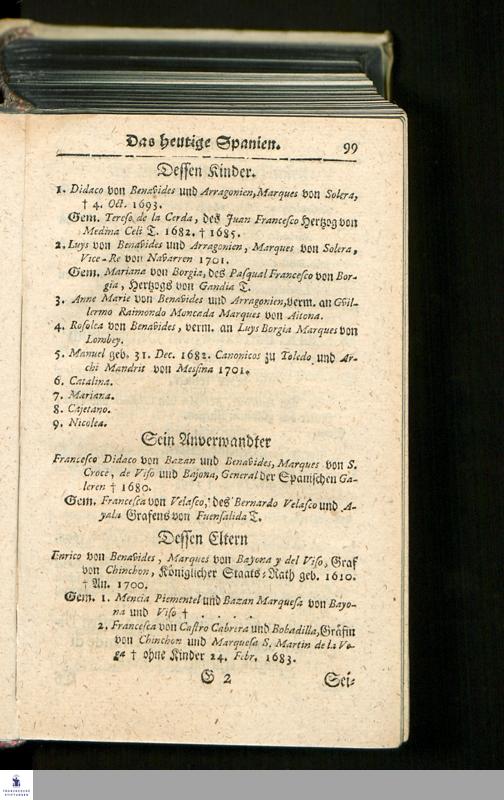 Das heutige Spanien. 99
Dessen Kinder.
1. Didaco von Benavides und Arragonien, Marques von Solera,
† 4. Oct. 1693.
Gem. Tereso de la Cerda, des Juan Francesco Hertzog von
Medina Celi T. 1682. † 1685.
2. Luys von Benavides und Arragonien, Marques von Solera,
Vice-Re von Navarren 1701.
Gem. Mariana von Borgia, des Pasqual Francesco von Bor-
gia, Hertzogs von Gandia T.
3. Anne Marie von Benavides und Arragonien, verm. an Guil-
lermo Raimondo Moncada Marques von Aitona.
4. Rosolea von Benavides, verm. an Luys Borgia Marques von
Lombey.
5. Manuel geb. 31. Dec. 1682. Canonicos zu Toledo und Ar-
chi Mandrit von Messina 1701.
6. Catalina.
7. Mariana.
8. Cajetano.
9. Nicolea.
Sein Anverwandter
Francesco Didaco von Bazan und Benavides, Marques von S.
Croce, de Viso und Bajona, General der Spanischen Ga-
leren † 1680.
Gem. Francesca von Velasco, des Bernardo Velasco und A-
yala Grafens von Fuensalida T.
Dessen Eltern
Enrico von Benavides, Marques von Bayona y del Viso, Graf
von Chinchon, Königlicher Staats-Rath geb. 1610.
† An. 1700.
Gem. 1. Mencia Piementel und Bazan Marquesa von Bayo-
na und Viso † . . . .
2. Francesca von Castro Cabrera und Bobadilla, Gräfin
von Chinchon und Marquesa S. Martin de la Ve-
ga † ohne Kinder 24. Febr. 1683.
G 2 Sei-
FRANCKESCHE
STIFTUNGEN